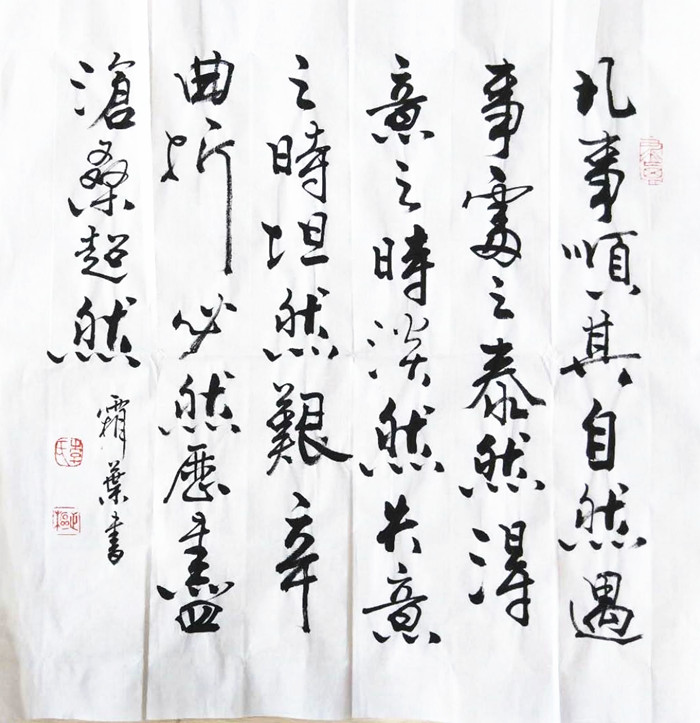 凡事順其自然遇
事處之泰然得
意之時淡然失意
之時坦然艱辛
曲折必然歷盡
滄桑超然
霜葉書